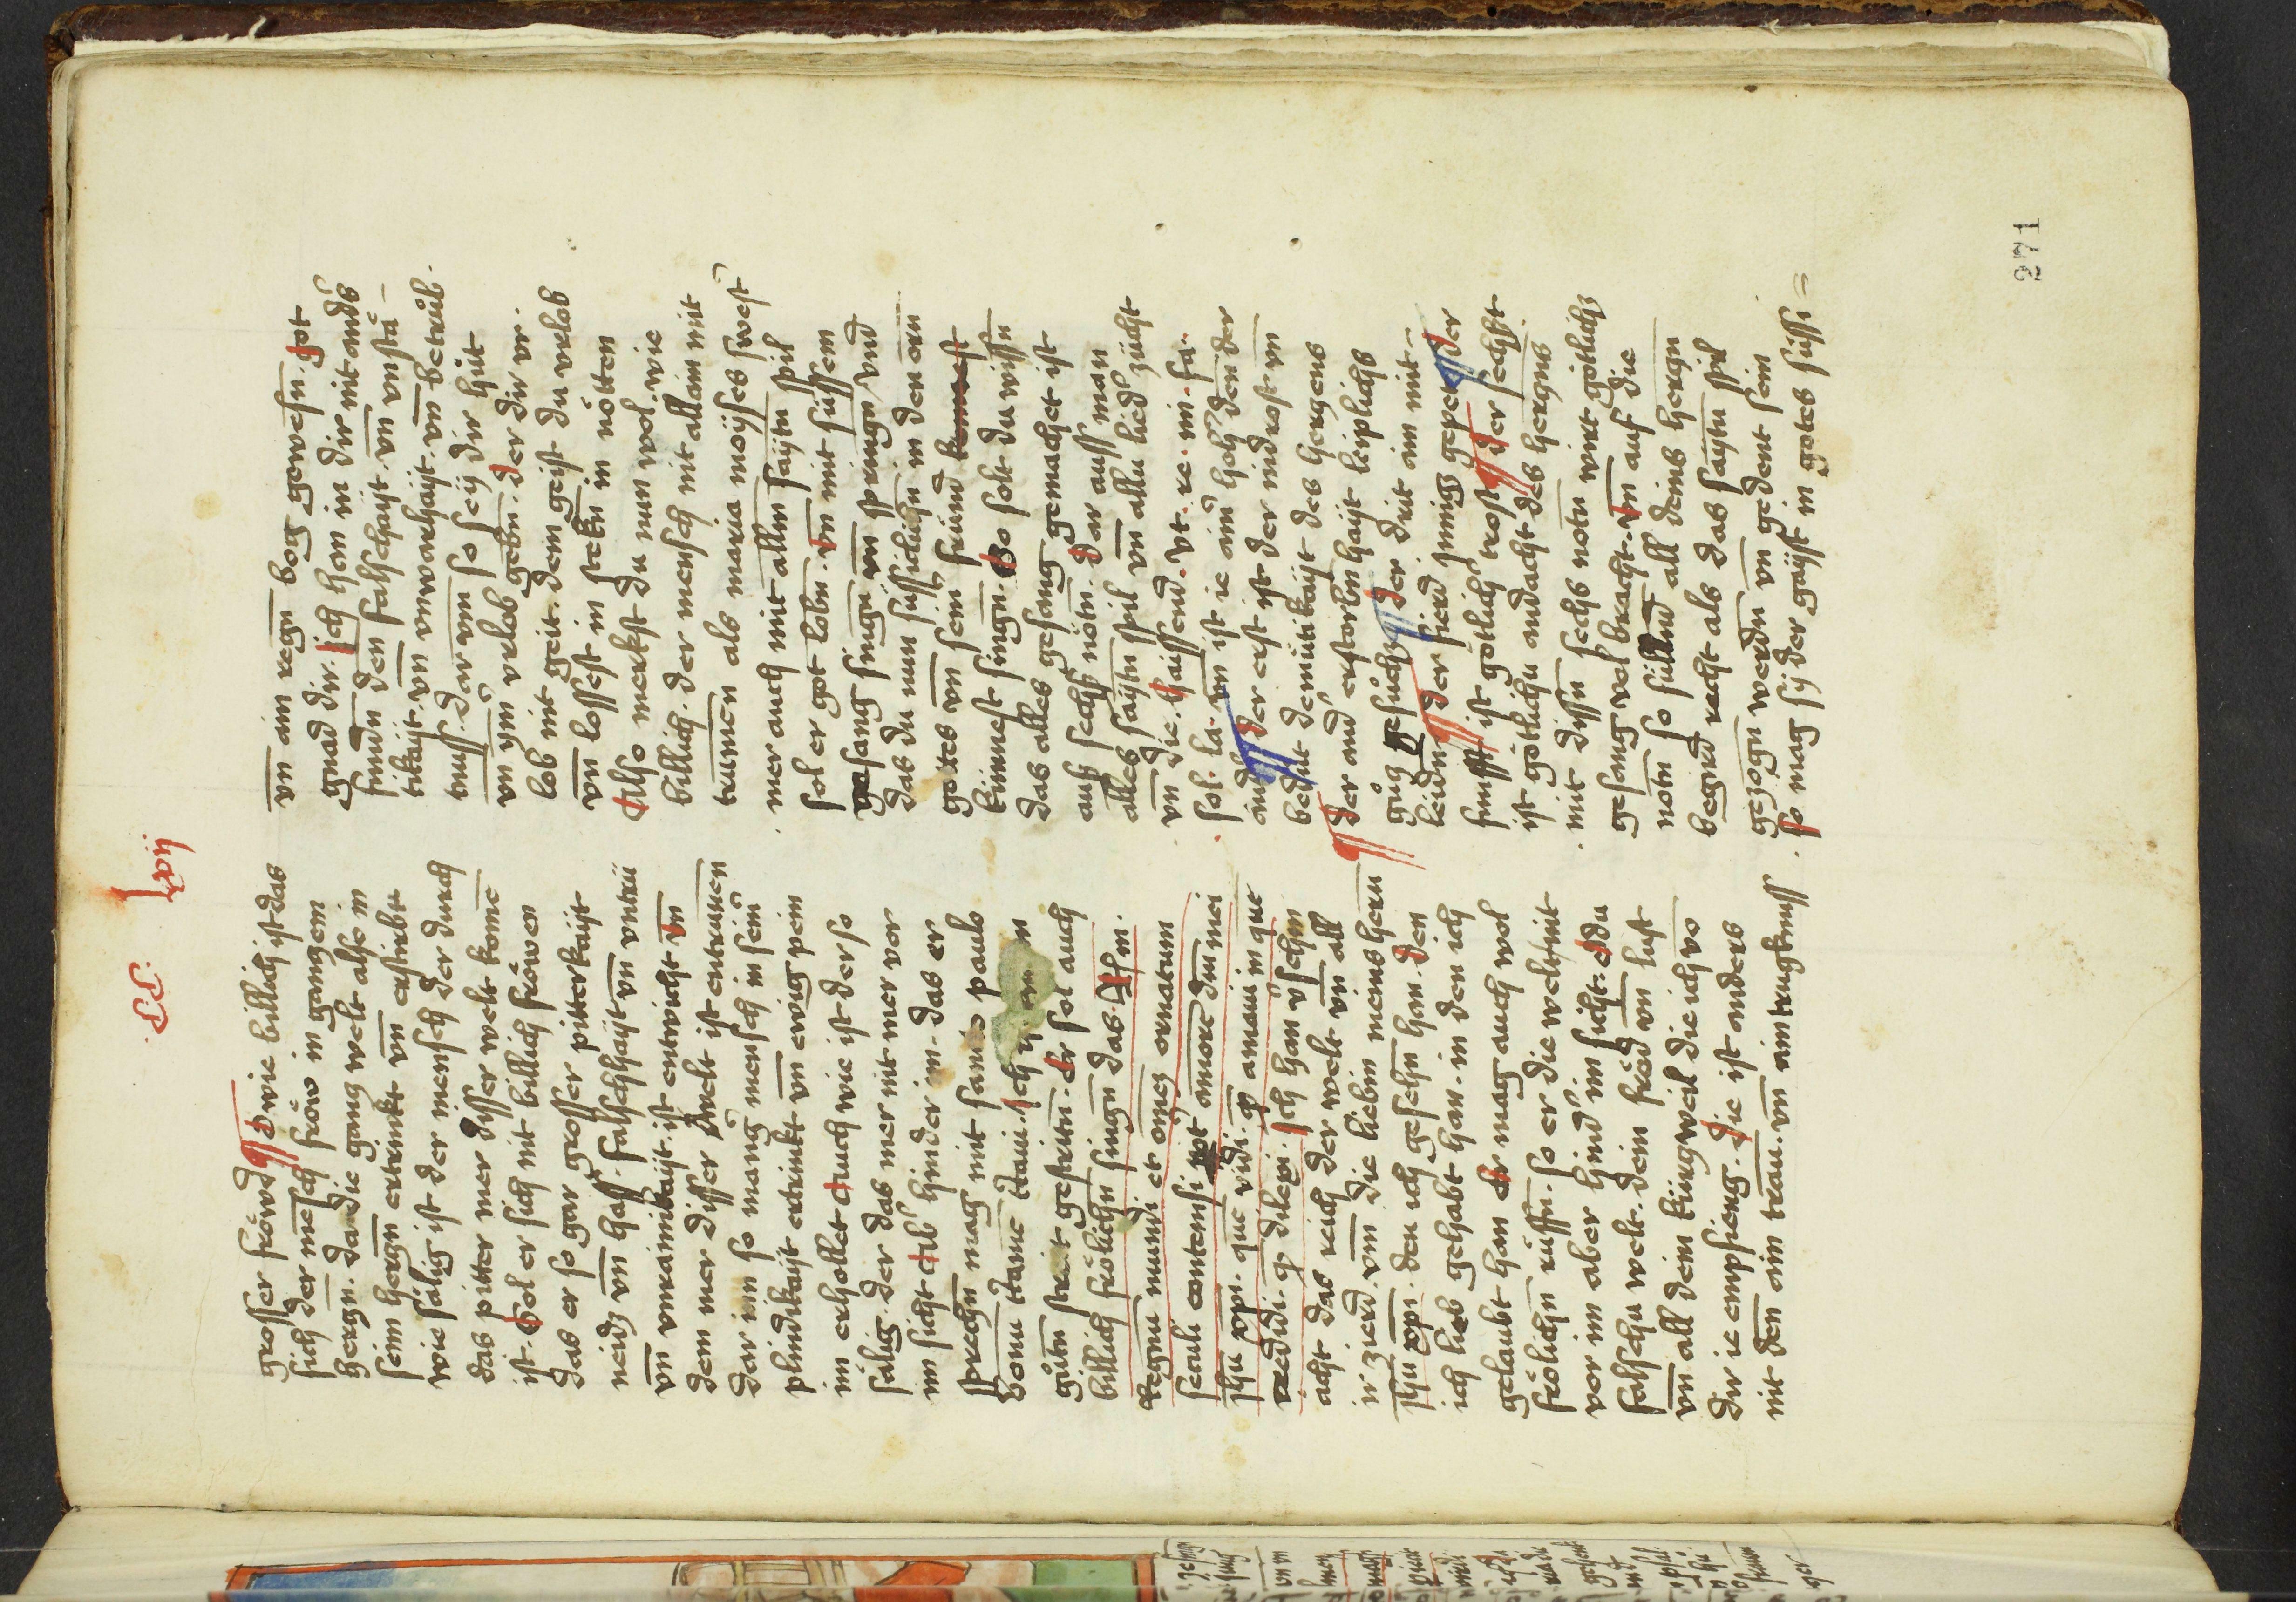 .CC. lxvij
grosser fröwd ¶ O wie billich ist das
sich der mēsch fröw in ganzem
herczn. da die gancz welt also in
seim herczn ertrinkt vn̄ erstirbt
wie sälig ist der mensch der durch
das pitter mer disser welt kome
ist. Sol er sich nit billich fröwen
das er so gar grosser pitterkayt
neids vn̄ hass. falschhayt vn̄ vntrü
vn̄ vnrainikayt. ist entwicht vn̄
dem mer disser welt ist entrunnen
dar inn so mang mensch in seim̄
plindikayt ertrinkt vn̄ ewig pein
im erhollet Auch wie ist der so
sälig. der das mer nit mer vor
im sicht Als hinder im. das er
sprechn̄ mag mit santo paulo
bonū
gůtn̄ streit gestritn̄. Er sol auch
billich frölichn̄ singn̄ das.
Regnū mundi et om̄ez ornatum
seculi contemsi ꝓpt̄ amorē dn̄i mei
jhū xpi. quē vidi. ꝙ amaui in quē
credidi. ꝙ dilexi. Ich han
acht das reich der welt vn̄ all
ir zierd. vm̄ die liebin meins hern
jhū xpi. den ich gesehn̄ han. den
ich lieb gehabt han. in den ich
gelaubt han Er mag auch wol
frölichn̄ rüffn̄. so er die welt nit
vor im aber hind' im sicht. O du
falschu welt. dein fröd vn̄ lust
vn̄ all dein kürczweil die ich vo
dir ie empfieng. die ist anders
nit den̄ ain traū. vn̄ ain trugknuss
vn̄ ain regn̄ bog gewesn̄. got
gnad dir. Ich han in dir nit and's
fundn̄ den falschayt. vn̄ vnstä-
tikayt. vn̄ vnworhayt. vn̄ betrüb-
nuss. dar vm̄ so sey dir hüt
vn̄ ym̄' vrlob gebn̄. der dir vr-
lob nit geit. dem geist du vrlob
vn̄ lossest in stekn̄ in nötten
Also merkst du nun wol. wie
billich. der mensch nit allain mit
trummen als maria moÿses swest'
mer auch mit alln̄ saytn̄ spil
sol er got lobn̄. vn̄ mit süssem
gesang singn̄ vn̄ springn̄ vnd
das du nun süssiclichn̄ in den orn̄
gotes vn̄ seim̄ fründ
kümmest singn̄. So solt du wissn̄
das alles gesang gemachet ist
auss sechs nötn̄. dar auss man
alles saytn̄ spil vn̄ allu lied' zücht
vn̄ die haissend. vt. re. mi. fa.
sol. la. vn̄ ist ie ain' höh' den der
and' ¶ der erst ist der indrost vn̄
bedüt demütikayt des herczens
¶ der and' erstorbn̄hayt leiplichs
gůcz gesuchz ¶ der drit ain mit-
leidn̄ ¶ der fierd innig gepet ¶ der
fünfft ist götlich' trost ¶ der sechst
ist götlichn̄ andacht des herczens
mit dissn̄ sechs notn̄ wirt götlichs
gesang vol bracht. vn̄ auf die
notn̄ so süllend all deins herczn
begird recht als das saytn̄ spil
gezogn̄ werdn̄ vn̄ gedent sein
so mag sy der gayst in gotes süssi=
271